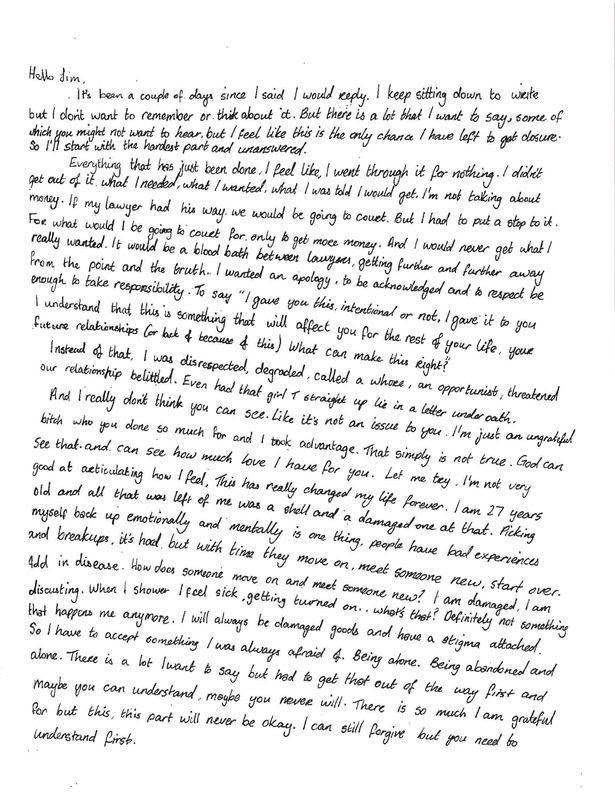 Hello Jim,
It's been a couple of days since I said I would reply. I keep sitting down to write
but I dont want to remember or thik about it. But there is a lot that I want to say, some of
which you might not want to hear, but I feel like this is the only chance I have left to get closure.
So I'll start with the hardest part and unanswered.
Everything that has just been done, I feel like, I went through it for nothing. I didn't
get out of it what I needed, what I wanted, what I was told I would get. I'm not talking about
money. If my lawyer had his way, we would be going to court. But I had to put a stop to it.
For what would I be going to court for. only to get more money. And I would never get what I
really wanted. It would be a blood bath between lawyers, getting further and further away
from the point and the truth. I wanted an apology, to be acknowledged and to respect be
enough to take responsibility. To say "I gave you this, intentional or not, I gave it to you
I understand that this is something that will affect you for the rest of your life, your
future relationships (or lack of because of this) What can make this right?"
Instead of that, I was disrespected, degraded, called a whore, an opportunist, threatened
our relationship belittled. Even had that girl T straight up lie in a letter under oath.
And I really dont think you can see. Like it's not an issue to you. I'm just an ungrateful
bitch who you done so much for and I took advantage. That simply is not true. God can
see that and can see how much love I have for you. Let me try, I'm not very
good at articulating how I feel, This has really changed my life forever. I am 27 years
old and all that was left of me was a shell and a damaged one at that. Picking
myself back up emotionally and mentally is one thing, people have bad experiences
and breakups, it's had, but with time they move on, meet someone new, start over.
Add in disease. How does someone move on and meet someone new? I am damaged, I am
discusting. When I shower I feel sick, getting turned on.. what's that? Definitely not something
that happens me anymore. I will always be damaged goods and have a stigma attached.
So I have to accept something I was always afraid of. Being alone. Being abandoned and
alone. There is a lot I want to say but had to get that out of the way first and
maybe you can understand, maybe you never will. There is so much I am grateful
for but this, this part will never be okay. I can still forgive but you need to
understand first.